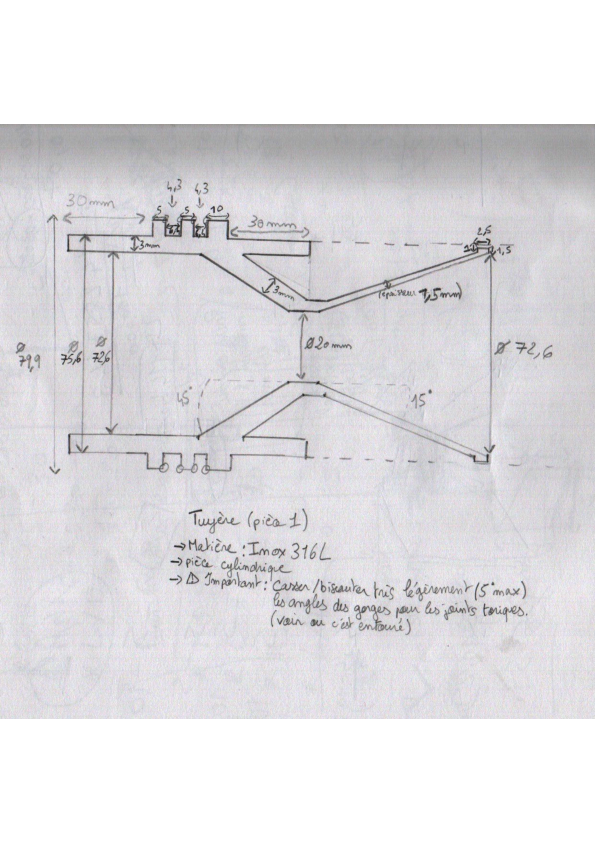 4,3
4,3
30mm
5
5
10
30mm
2,5
3mm
2
1,5
3mm
(épaisseur 1,5mm)
Ø
79,9
Ø
75,6
Ø
72,6
Ø20mm
Ø 72,6
45°
15°
Tuyère (pièce 1)
→ Matière : Inox 316L
→ pièce cylindrique
→ ⚠ Important : Casser/biseauter très légèrement (5° max)
les angles des gorges pour les joints toriques.
(voir où c'est entouré)